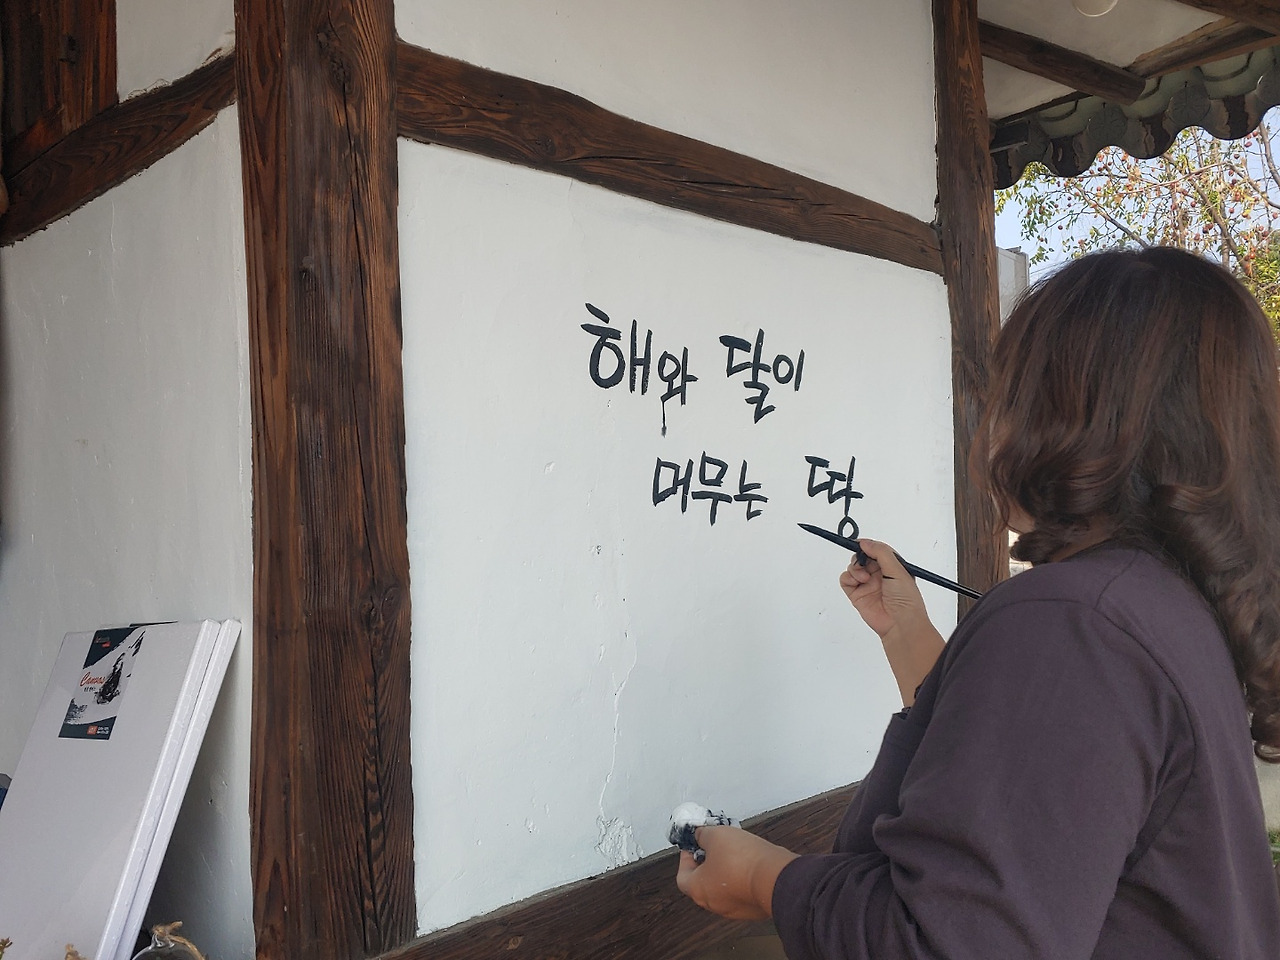 해와 달이
머무는 땅
Canvas